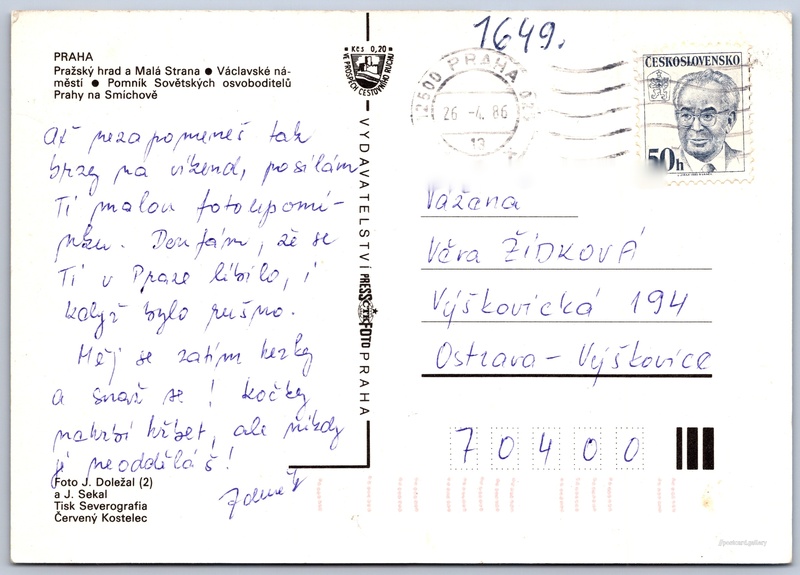 1649.
PRAHA
Pražský hrad a Malá Strana ● Václavské ná-
městí ● Pomník Sovětských osvoboditelů
Prahy na Smíchově
Kčs 0,20
VE PROSPĚCH CESTOVNÍHO RUCHU
PRAHA
26 -4. 86
13
ČESKOSLOVENSKO
50h
Ať nezapomeneš tak
brzy na víkend, posílám
Ti malou fotoupomí-
nku. Doufám, že se
Ti v Praze líbilo, i
když bylo rušno.
Měj se zatím hezky
a snaž se! Kočky
nahrbí hřbet, ale nikdy
ji neodděláš!
Zdeněk
VYDAVATELSTVÍ PRESSFOTO PRAHA
ČTK
Vážená
Věra ŽÍDKOVÁ
Výškovická 194
Ostrava - Výškovice
70400
Foto J. Doležal (2)
a J. Sekal
Tisk Severografia
Červený Kostelec